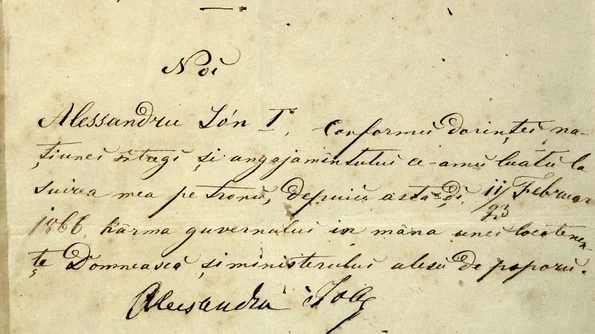 Noi
Alessandru Ión I, conformu dorinței na-
țiunei întregi și angajamentului ce-amu luatu la
suirea mea pe tronu, depuiu astă-ḑi 11/23 Februar
1866 kârma guvernului in mâna unei locotenen-
țe Domnească și ministerului alesu de poporu.
Alessandru Ioan